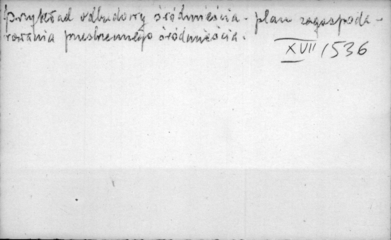 Przykład odbudowy śródmieścia - plan zagospoda-
rowania przestrzennego śródmieścia.
XVII/536